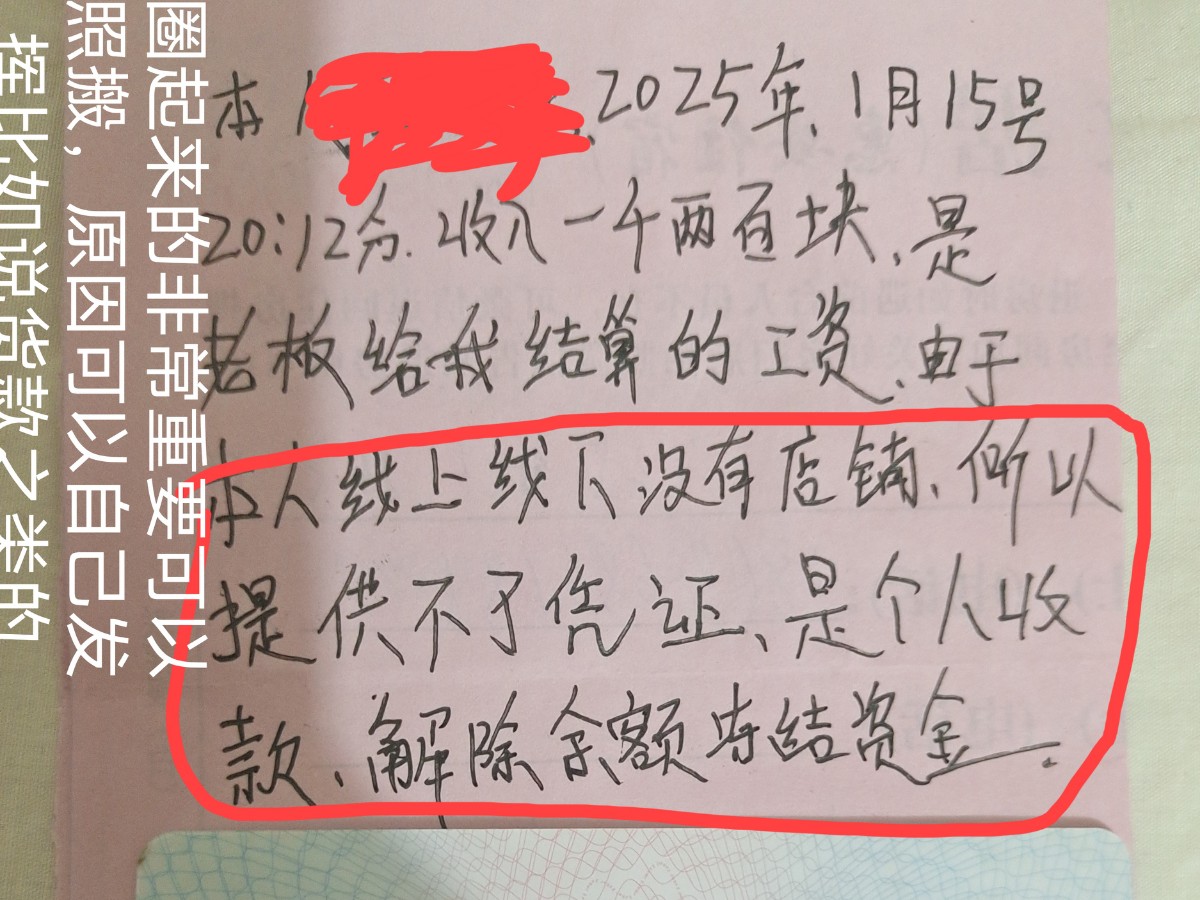 圈起来的非常重要可以
照搬，原因可以自己发
挥比如说货款之类的
本人 、2025年、1月15号
20:12分.收入一千两百块、是
老板给我结算的工资、由于
本人线上线下没有店铺、所以
提供不了凭证、是个人收
款、解除余额冻结资金.